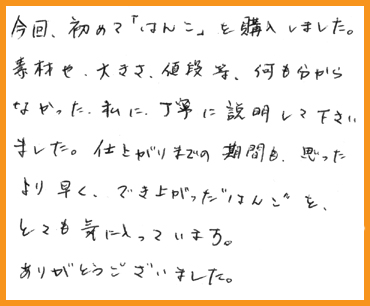 今回、初めて「はんこ」を購入しました。
素材や、大きさ、値段等、何も分から
なかった、私に、丁寧に説明して下さい
ました。仕上がりまでの期間も、思った
より早く、でき上がった"はんこ"を、
とても気に入っています。
ありがとうございました。